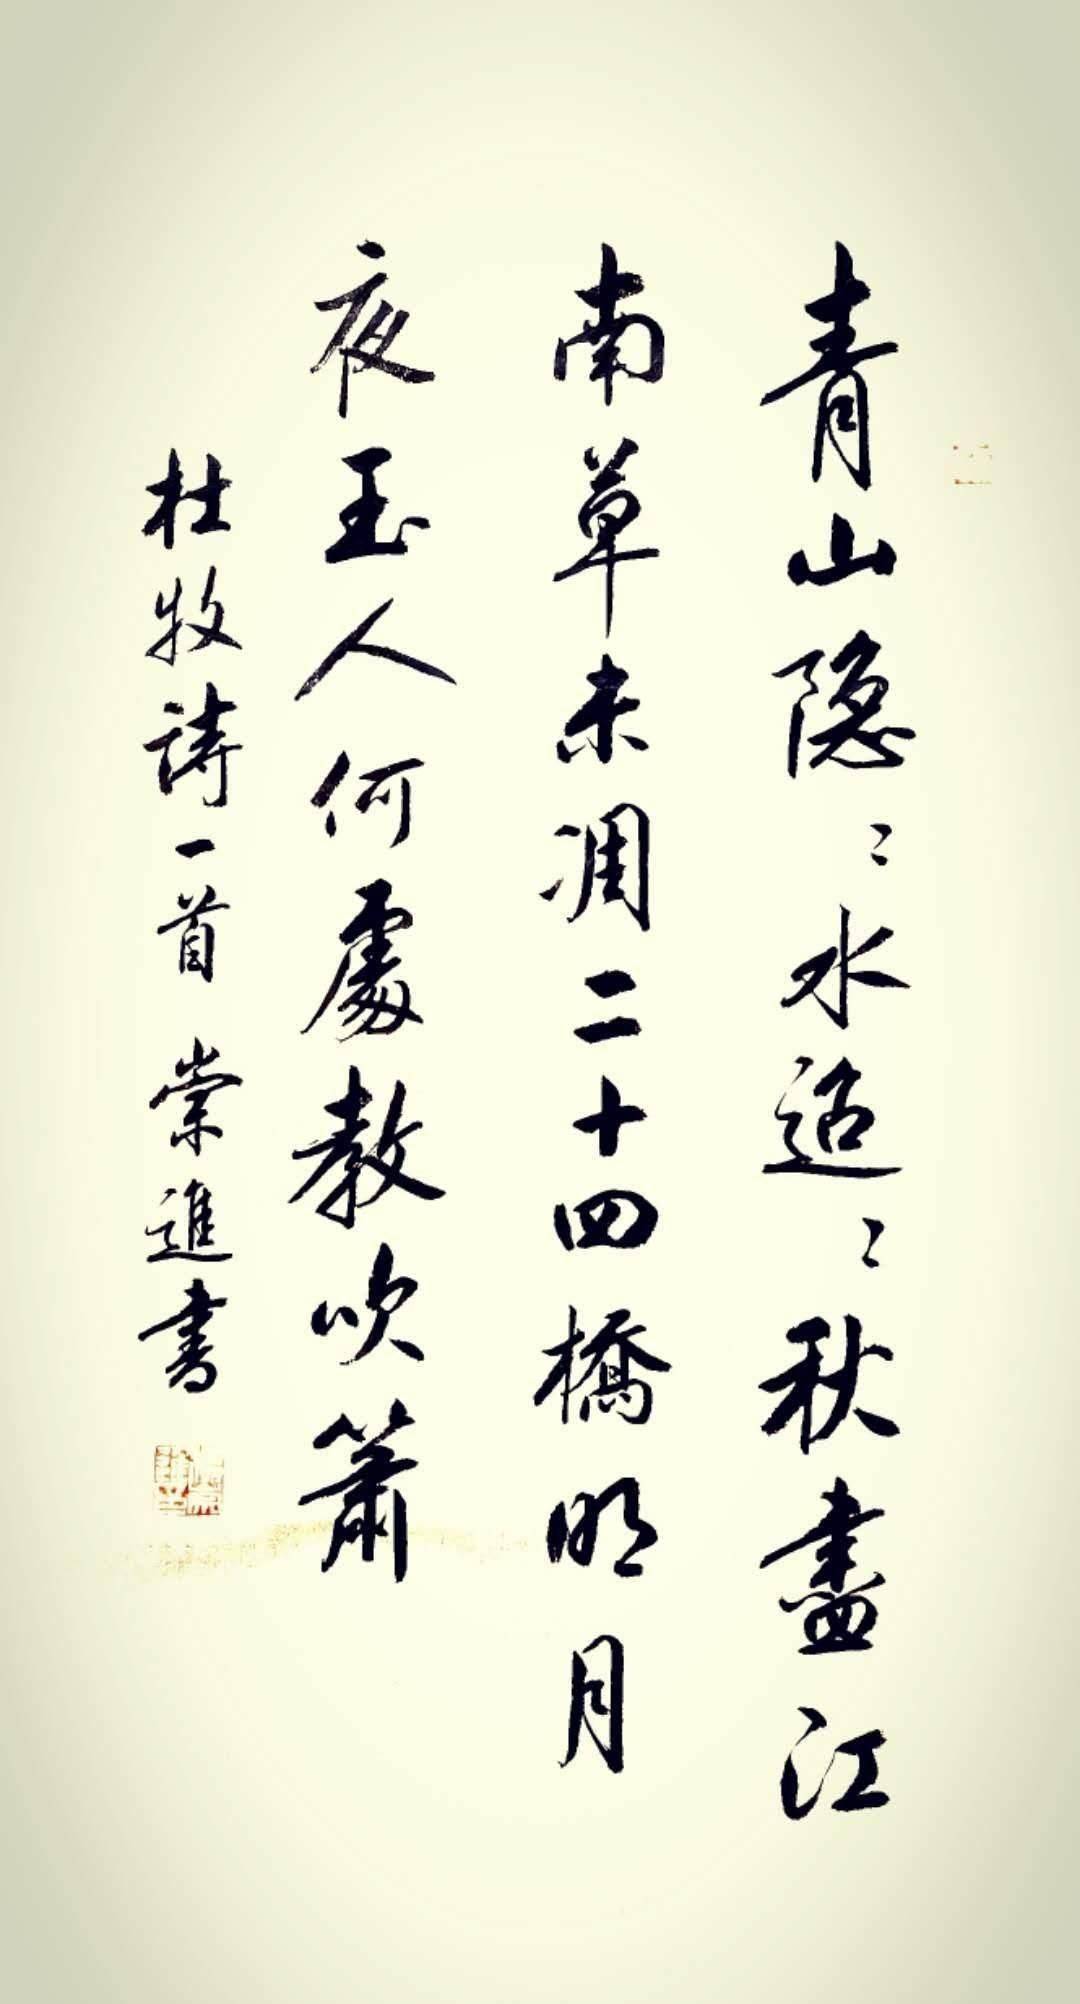 青山隐〻水迢〻秋盡江
南草未凋二十四橋明月
夜玉人何處教吹簫
杜牧詩一首 崇進書